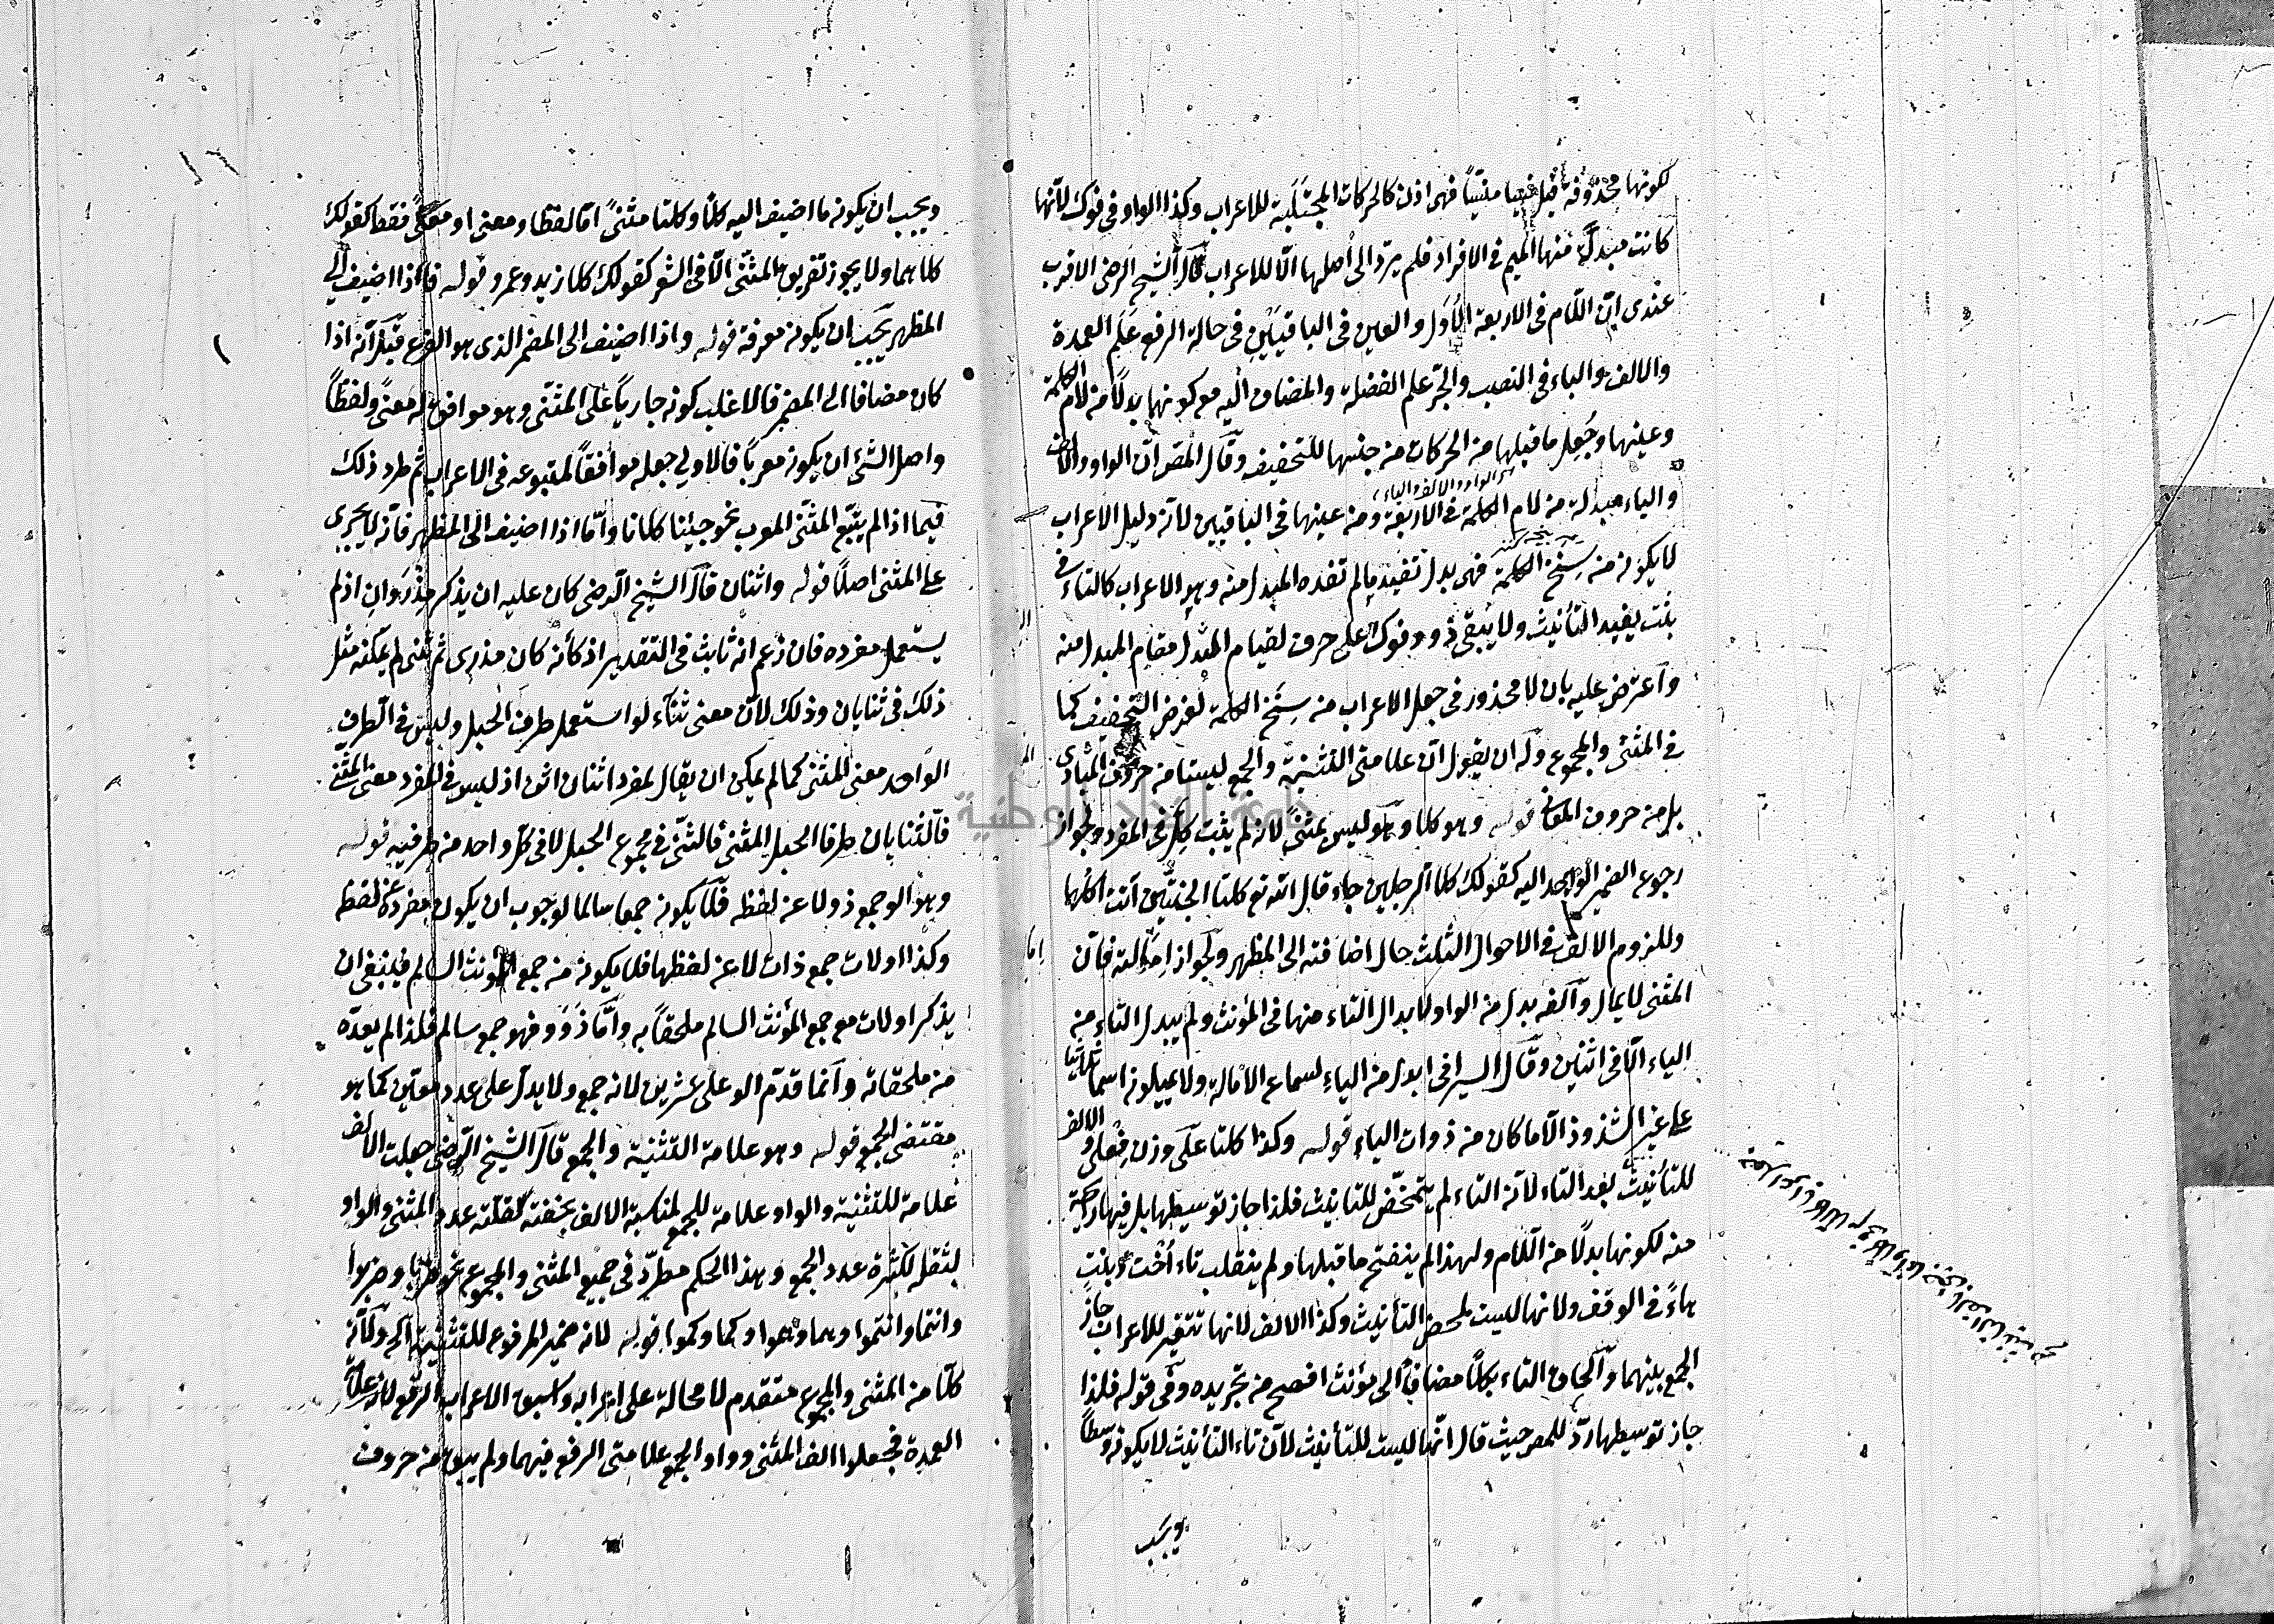 لكونها محذوفة قبل نسيا منسيّاً فهى اذن كالحركات المجتلَبة للاعراب وكذا الواو فى فوك لانّها
كانت مبدلة منها الميم فى الافراد فلم يردّ الى اصلها الّا للاعراب قال الشيخ الرضى الاقرب
عندى انّ اللام فى الاربعة الأول والعين فى الباقيَيْنِ فى حالة الرفع عَلَم العمدة
والالف والياء فى النصب والجرّ علم الفضلة والمضاف اليه مع كونها بدلاً من لام الكلمة
وعينها وجُعِل ما قبلها من الحركات من جنسها للتخفيف وقال المص انّ الواو والالف
اى الواو والالف والياء
والياء مبدلة من لام الكلمة فى الاربعة ومن عينها فى الباقيين لانّه دليل الاعراب
لا يكون من سِنْخ الكلمة فهى بدل تفيد ما لم تفده المبدل منه وهو الاعراب كالتاء فى
بنت يفيد التأنيث ولا يبقى ذو وفوك على حرف لقيام البدل مقام المبدل منه
واعترض عليه بان لا محذور فى جعل الاعراب من سِنْخ الكلمة لغرض التخفيف كما
فى المثنى والمجموع وله ان يقول انّ علامتى التثنية والجمع ليستا من حروف المبادى
بل من حروف المعانى قوله وهو كلا وهو ليس بمثنًى لانه لم يثبت كِلٌ فى المفرد ولجواز
رجوع الضمير الواحد اليه كقولك كلا الرجلين جاء قال الله تع كلتا الجنتين آتت اكلها
وللزوم الالف فى الاحوال الثلث حال اضافته الى المظهر ولجواز امالته فانّ
المثنى لا يمال وألفه بدل من الواو لابدال التاء منها فى المؤنث ولم يبدل التاء من
الياء الّا فى اثنين وقال السيرافى ابدل من الياء لسماع الامالة ولا يميلون اسما ثلاثيا
على غير الشذوذ الّا ما كان من ذوات الياء قوله وكذا كلتا على وزن فِعْلى والالف
للتأنيث بعد التاء لانّ التاء لم يتمحّض للتانيث فلذا جاز توسيطها بل فيها رائحة
منه لكونها بدلاً من اللام ولهذا لم ينفتح ما قبلها ولم ينقلب تاء أخت وبنت
هاءً فى الوقف ولانها ليست لمحض التأنيث وكذا الالف لانها تتغير للاعراب جاز
الجمع بينهما والحاق التاء بكلا مضافاً الى مؤنث افصح من تجريده وفى قوله فلذا
جاز توسيطها ردّ للمص حيث قال انّها ليست للتأنيث لانّ تاء التأنيث لا يكون وسطاً
ويجب
ويجب ان يكون ما اضيف اليه كلا وكلتا مثنىً امّا لفظا ومعنى او معنىً فقط كقولك
كلاهما ولا يجوز تفريق المثنّى الّا فى الشعر كقولك كلا زيد وعمرو قوله فاذا اضيف الى
المظهر يجب ان يكون معرفة قوله واذا اضيف الى المضمر الذى هو الفرع قيل انه اذا
كان مضافا الى المضمر فالاغلب كونه جارياً على المثنّى وهو موافق له معنىً ولفظاً
واصل الشئ ان يكون معرباً فالاولى جعله موافقاً لمتبوعه فى الاعراب ثم طرد ذلك
فيما اذا لم يتّبع المثنّى المعرب نحو جيئنا كلانا وامّا اذا اضيف الى المظهر فانّه لا يجرى
على المثنى اصلاً قوله واثنان قال الشيخ الرضى كان عليه ان يذكر مِذْرَوانِ اذ لم
يستعمل مفرده فان زعم انه ثابت فى التقدير اذ كأنه كان مذرى ثم ثنى لم يمكنه مثل
ذلك فى ثنايان وذلك لانّ معنى ثناء لو استعمل طرف الحبل وليس فى الطرف
الواحد معنى المثنى كما لم يمكن ان يقال لمفرد اثنان اثن اذ ليس فى المفرد معنى المثنى
فالثنايان طرفا الحبل المثنى فالثنى فى مجموع الحبل لا فى كلّ واحد من طرفيه قوله
وهو الو جمع ذو لا عن لفظه فلا يكون جمعا سالما لوجوب ان يكون مفرده عن لفظه
وكذا اولات جمع ذات لا عن لفظها فلا يكون من جمع المؤنث السالم فينبغى ان
يذكر اولات مع جمع المؤنث السالم ملحقاً به وامّا ذَوُو فهو جمع سالم فلذا لم يعدّه
من ملحقاته وانما قدّم الو على عشرين لانه جمع ولا يدلّ على عدد معيّن كما هو
مقتضى الجمع قوله وهو علامة التثنية والجمع قال الشيخ الرضى جعلت الالف
علامة للتثنية والواو علامة للجمع لمناسبة الالف بخفته لقلّته عدد المثنى والواو
بثقله لكثرة عدد الجمع وهذا الحكم مطرّد فى جميع المثنى والمجموع نحو ضربا وضربوا
وانتما وانتموا وهما وهموا وكما وكموا قوله لانه ضمير المرفوع للتثنية الخ ولانّ
كلّا من المثنى والمجموع متقدم لا محالة على اعرابه واسبق الاعراب الرفع لانه علامة
العمدة فجعلوا الف المثنى وواو الجمع علامتى الرفع فيهما ولم يبق من حروف